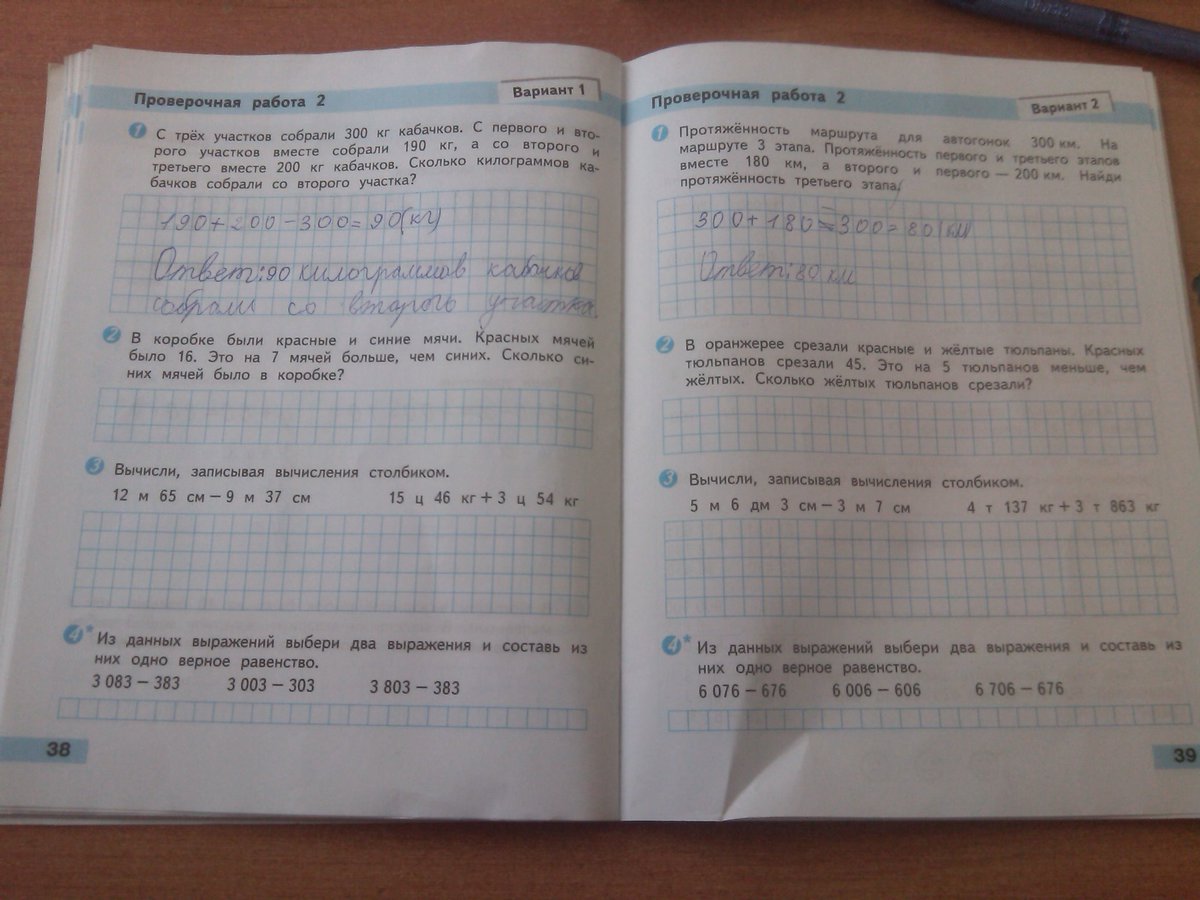 Проверочная работа 2
Вариант 1
1 С трёх участков собрали 300 кг кабачков. С первого и вто-
рого участков вместе собрали 190 кг, а со второго и
третьего вместе 200 кг кабачков. Сколько килограммов ка-
бачков собрали со второго участка?
190+200-300=90(кг)
Ответ:90 килограммов кабачков
собрали со второго участка.
2 В коробке были красные и синие мячи. Красных мячей
было 16. Это на 7 мячей больше, чем синих. Сколько си-
них мячей было в коробке?
3 Вычисли, записывая вычисления столбиком.
12 м 65 см – 9 м 37 см 15 ц 46 кг + 3 ц 54 кг
4* Из данных выражений выбери два выражения и составь из
них одно верное равенство.
3 083 – 383 3 003 – 303 3 803 – 383
38
Проверочная работа 2
Вариант 2
1 Протяжённость маршрута для автогонок 300 км. На
маршруте 3 этапа. Протяжённость первого и третьего этапов
вместе 180 км, а второго и первого — 200 км. Найди
протяжённость третьего этапа.
300+180-300=80(км)
Ответ:80 км
2 В оранжерее срезали красные и жёлтые тюльпаны. Красных
тюльпанов срезали 45. Это на 5 тюльпанов меньше, чем
жёлтых. Сколько жёлтых тюльпанов срезали?
3 Вычисли, записывая вычисления столбиком.
5 м 6 дм 3 см – 3 м 7 см 4 т 137 кг + 3 т 863 кг
4* Из данных выражений выбери два выражения и составь из
них одно верное равенство.
6 076 – 676 6 006 – 606 6 706 – 676
39